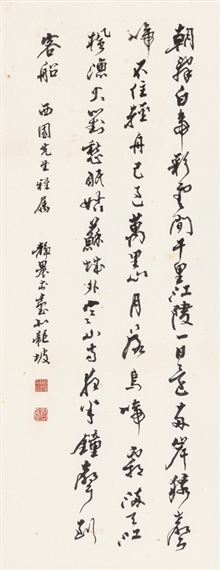 朝辭白帝彩雲間千里江陵一日還兩岸猿聲
啼不住輕舟已過萬重山月落烏啼霜滿天江
楓漁火對愁眠姑蘇城外寒山寺夜半鐘聲到
客船 西園先生雅屬 靜農於臺北龍坡